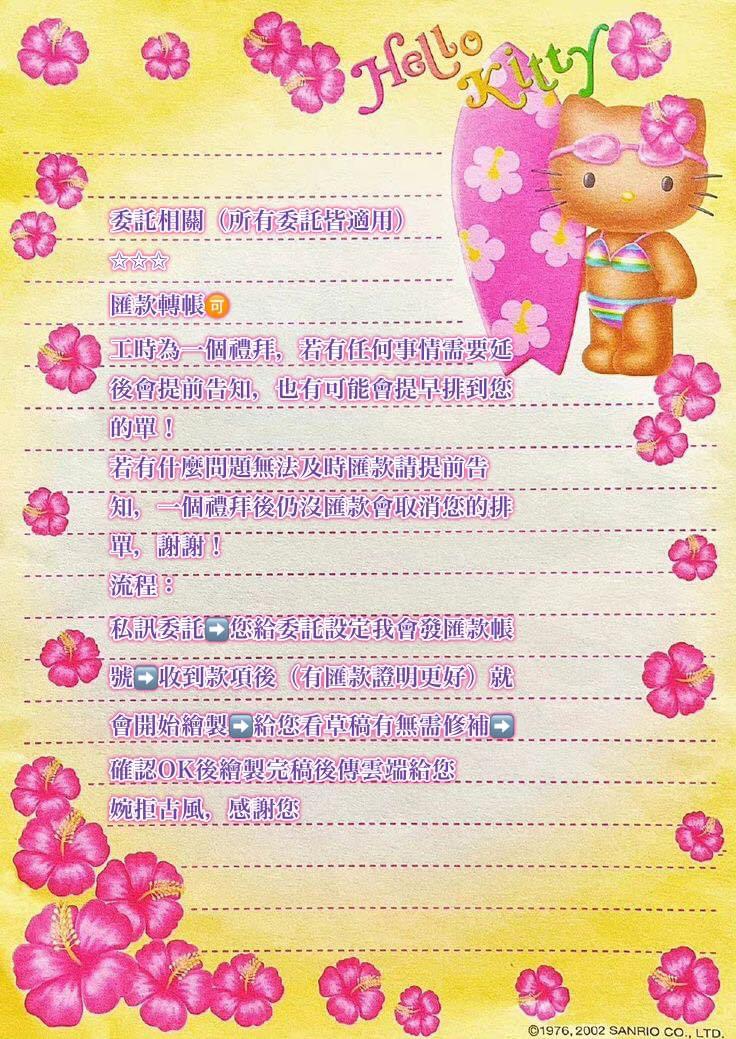 Hello Kitty
委託相關（所有委託皆適用）
☆☆☆
匯款轉帳🉑
工時為一個禮拜，若有任何事情需要延
後會提前告知，也有可能會提早排到您
的單！
若有什麼問題無法及時匯款請提前告
知，一個禮拜後仍沒匯款會取消您的排
單，謝謝！
流程：
私訊委託➡️您給委託設定我會發匯款帳
號➡️收到款項後（有匯款證明更好）就
會開始繪製➡️給您看草稿有無需修補➡️
確認OK後繪製完稿後傳雲端給您
婉拒古風，感謝您
©1976, 2002 SANRIO CO., LTD.